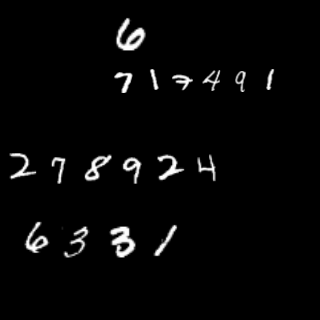 6
717491
278924
6331